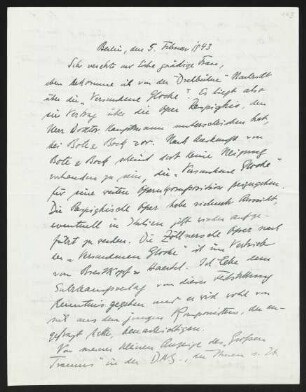 Berlin, den 5. Februar 1943
Sehr verehrte und liebe, gnädige Frau,
eben bekomme ich von der "Drehbühne" Nachricht
über die "Versunkene Glocke". Es liegt also
ein Vertrag über die Oper Respighis, den
Herr Doktor Hauptmann unterschrieben hat,
bei Bote & Bock vor. Nach Auskunft von
Bote & Bock scheint dort keine Neigung
vorhanden zu sein, die "Versunkene Glocke"
für eine weitere Opernkomposition freizugeben.
Die Respighische Oper habe vielmehr Aussicht,
eventuell in Italien jetzt wieder aufge-
führt zu werden. Die Zöllnersche Oper nach
der "Versunkenen Glocke" ist im Vertrieb
von Breitkopf & Haertel. Ich habe dem
von dieser Feststellung
Kenntnis gegeben und er wird wohl von
sich aus den jungen Komponisten, der an-
gefragt hatte, benachrichtigen.
Von meiner kleinen Anzeige des "Großen
Traumes" in der D.A.Z., der Ihnen u. Dr.